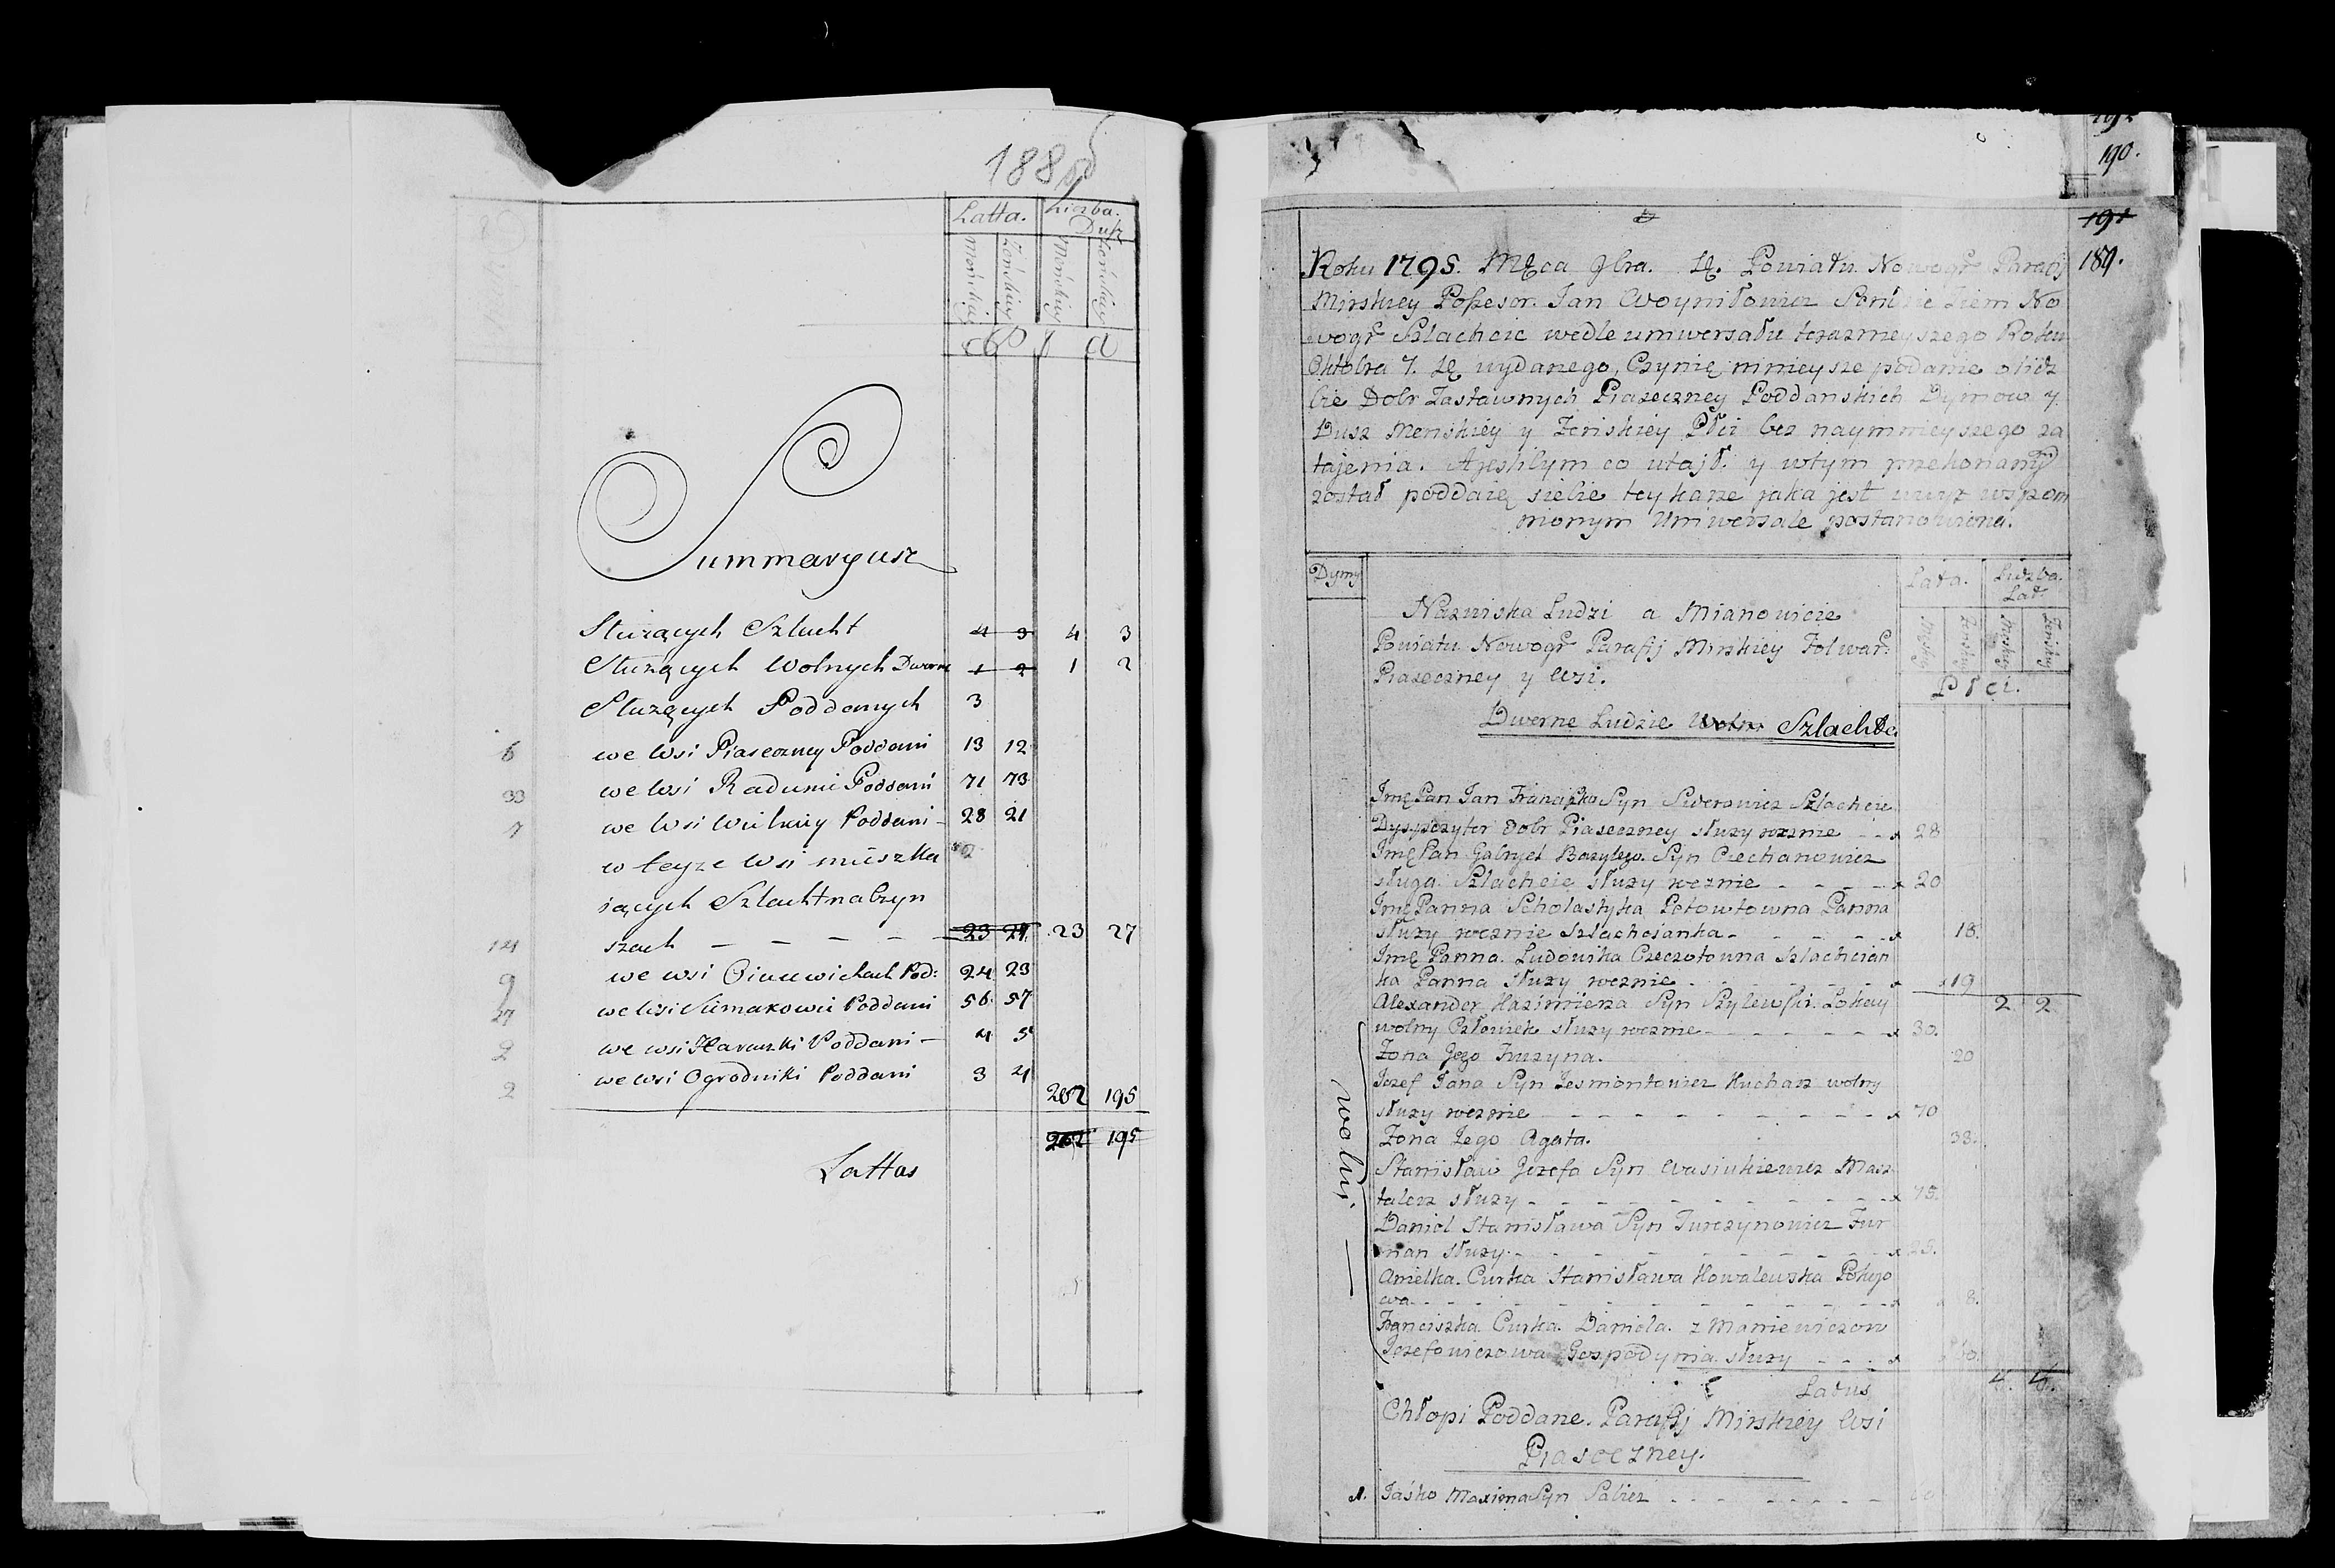 188 об
Latta. Liczba
Dusz
Męńskiey Żeńskiey Męńskiey Żeńskiey
Summaryusz
Służących Szlacht 4 3 4 3
Służących Wolnych Dworne 1 2 1 2
Służących Poddanych 3
6 we Wsi Piaseczney Poddani 13 12
33 we Wsi Raduni Poddani 71 73
7 we Wsi Wielkiey Poddani - 28 21
w teyże Wsi mieszka
iących Szlacht na Czyn
14 szach - - - - - 23 27 23 27
9 we wsi Pod: 24 23
27 we Wsi Simakowie Poddani 56 57
2 we wsi Haraszki Poddani - 4 5
2 we Wsi Ogrodniki Poddani 3 4
202 195
202 195
Lattus
190.
191
189.
Roku 1795. Męca 9bra. Dę. Powiatu Nowogr Parafij
Mirskiey Possesor Jan Woyniłowicz Sędzic Ziem No
wogr Szlachcic wedle uniwersału teraznieyszego Roku
Oktobra 7. Dę wydanego, Czynię ninieysze podanie o licz
bie Dobr Zastawnych Piaseczney Poddanskich Dymow y
Dusz Menskiey y Zenskiey Płci bez naymnieyszego za
tajenia. A jeslibym co utajł. y wtym przekonany
został poddaię siebie tey karze jaka jest wwyz wspom
nionym Uniwersale postanowiona.
Dymy Lata. Liczba
Lat.
Nazwiska Ludzi a Mianowicie
Powiatu Nowogr Parafij Mirskiey Folwar:
Piaseczney y Wsi.
Płci.
Dworne Ludzie Wolne Szlachta
Jmę Pan Jan Franciszka Syn Siverowicz Szlachcic
Dyspozytor dobr Piaseczney służy rocznie - - x 28
Jmę Pan Gabryel Bazylego Syn Ciechanowicz
sługa Szlachcic służy rocznie - - - - x 20
Jmę Panna Scholastyka Petowtowna Panna
służy rocznie Szlachcianka - - - - - x 18.
Jmę Panna Ludowika Czeczotowna Szlachcian
ka Panna służy rocznie - - - - - x 19
Alexander Kazimierza Syn Szylewski Lokay 2 2
wolny Człowiek służy rocznie - - - - - x 30.
Zona Jego Fruzyna. 20
Jozef Jana Syn Jesmontowicz Kucharz wolny
służy rocznie - - - - - - - x 70
Zona Jego Agata. 38.
Stanisław Jozefa Syn Wasiukiewicz Masz
talerz służy - - - - - - - x 75.
Daniel Stanisława Syn Turczynowicz Fur
man służy - - - - - - - x 25.
Anielka Curka Stanisława Kowalewska Pokojo
wa - - - - - - - x 8.
Franciszka Curka Daniela z Maniewiczow
Jozefowiczowa Gospodynia służy - - - x 60.
wolni
Latus 4. 4.
Chłopi Poddane. Parafij Mirskiey Wsi
Piaseczney.
1. Jaśko Maxima Syn - - - - - - 60